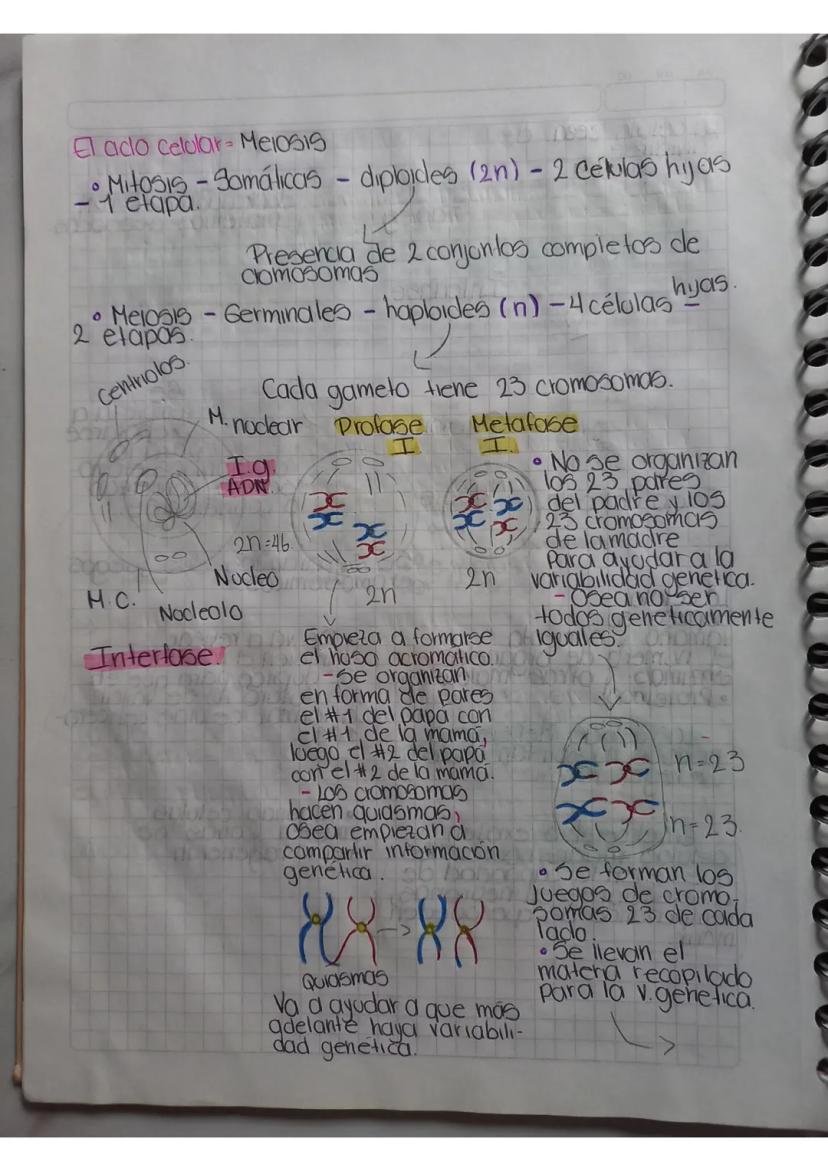 El ciclo celular = Meiosis
• Mitosis - Somáticas - diploides (2n) - 2 células hijas
- 1 etapa.
Presencia de 2 conjuntos completos de
cromosomas
• Meiosis - Germinales - haploides (n) - 4 células hijas.
2 etapas.
Cada gameto tiene 23 cromosomas.
Centriolos.
M. nuclear
I.g
ADN.
2n=46
Nucleo
M.C.
Nucleolo
Interfase.
Profase
I
2n
Empieza a formarse
el huso acromatico.
- Se organizan
en forma de pares
el #1 del papá con
el #1 de la mamá,
luego el #2 del papá
con el #2 de la mamá.
- Los cromosomas
hacen quiasmas,
osea empiezan a
compartir información
genética.
Quiasmas
Va a ayudar a que más
adelante haya variabili-
dad genética.
Metafase
I.
2n
• No se organizan
los 23 pares
del padre y los
23 cromosomas
de la madre
para ayudar a la
variabilidad genetica.
- Osea no ser
todos geneticamente
iguales.
n=23
n=23.
• Se forman los
juegos de cromo-
somas 23 de cada
lado.
• Se llevan el
materia recopilado
para la v. genetica.